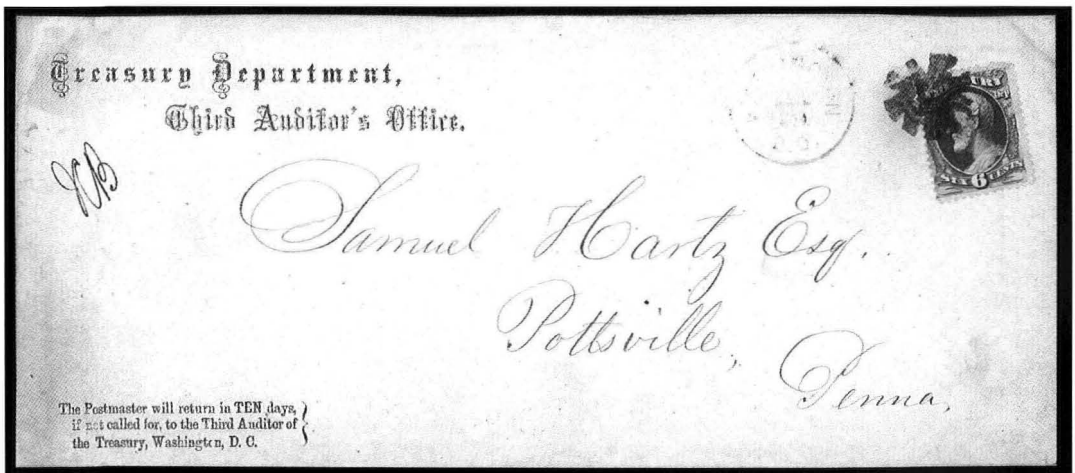 Treasury Department,
Third Auditor's Office.
Samuel Hartz Esq.
Pottsville,
Penna,
SIX 6 CENTS
D.C.
The Postmaster will return in TEN days,
if not called for, to the Third Auditor of
the Treasury, Washington, D. C.